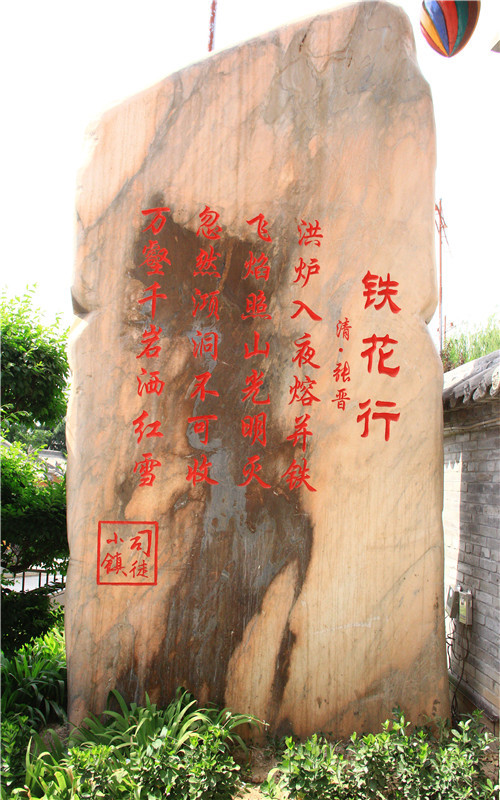 铁花行
清·张晋
洪炉入夜熔并铁
飞焰照山光明灭
忽然澒洞不可收
万壑千岩洒红雪
司徒
小镇